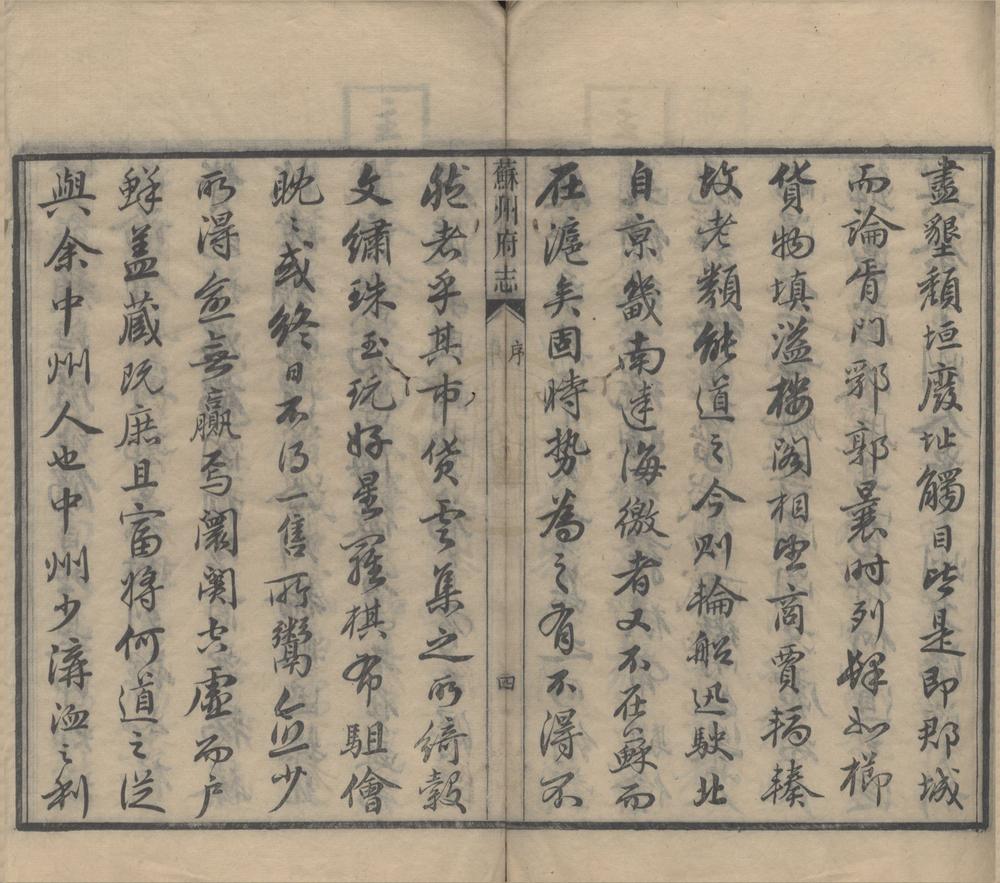 盡墾頹垣廢址觸目皆是即郡城
而論胥門鄂郭曩時列肆如櫛
貨物填溢樓閣相望商賈輻輳
故老類能道之今則輪船迅駛北
自京畿南達海徼者又不在蘇而
在滬矣固時勢為之有不得不
蘇州府志
序
四
然者乎其市貨雲集之所綺縠
文繡珠玉玩好星羅棋布駔儈
眈〻或終日不得一售所鬻愈少
所得愈無贏焉闤闠空虛而戶
鮮蓋藏既庶且富將何道之從
與余中州人也中州少溝洫之利